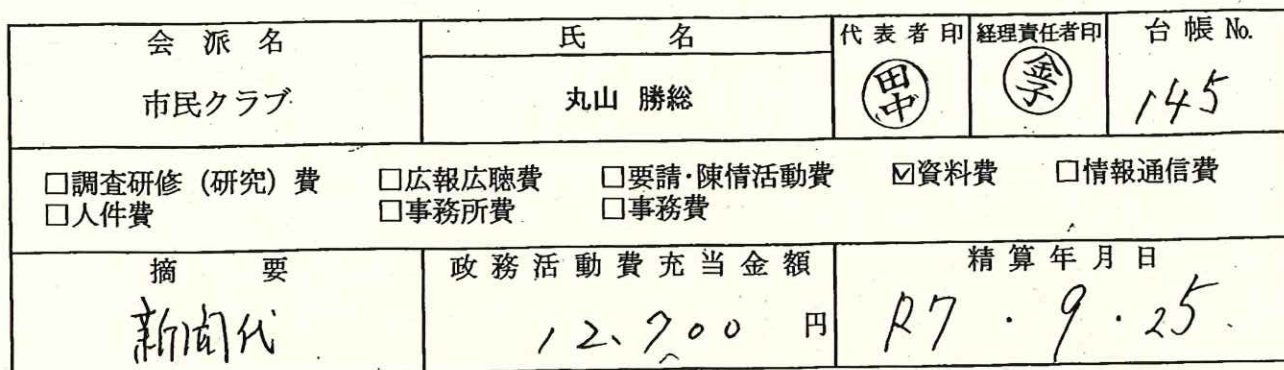 会派名 氏名 代表者印 経理責任者印 台帳No.
市民クラブ 丸山 勝総 田中 金子 145
□調査研修（研究）費 □広報広聴費 □要請・陳情活動費 ☑資料費 □情報通信費
□人件費 □事務所費 □事務費
摘要 政務活動費充当金額 精算年月日
新聞代 12,700 円 R7・9・25.